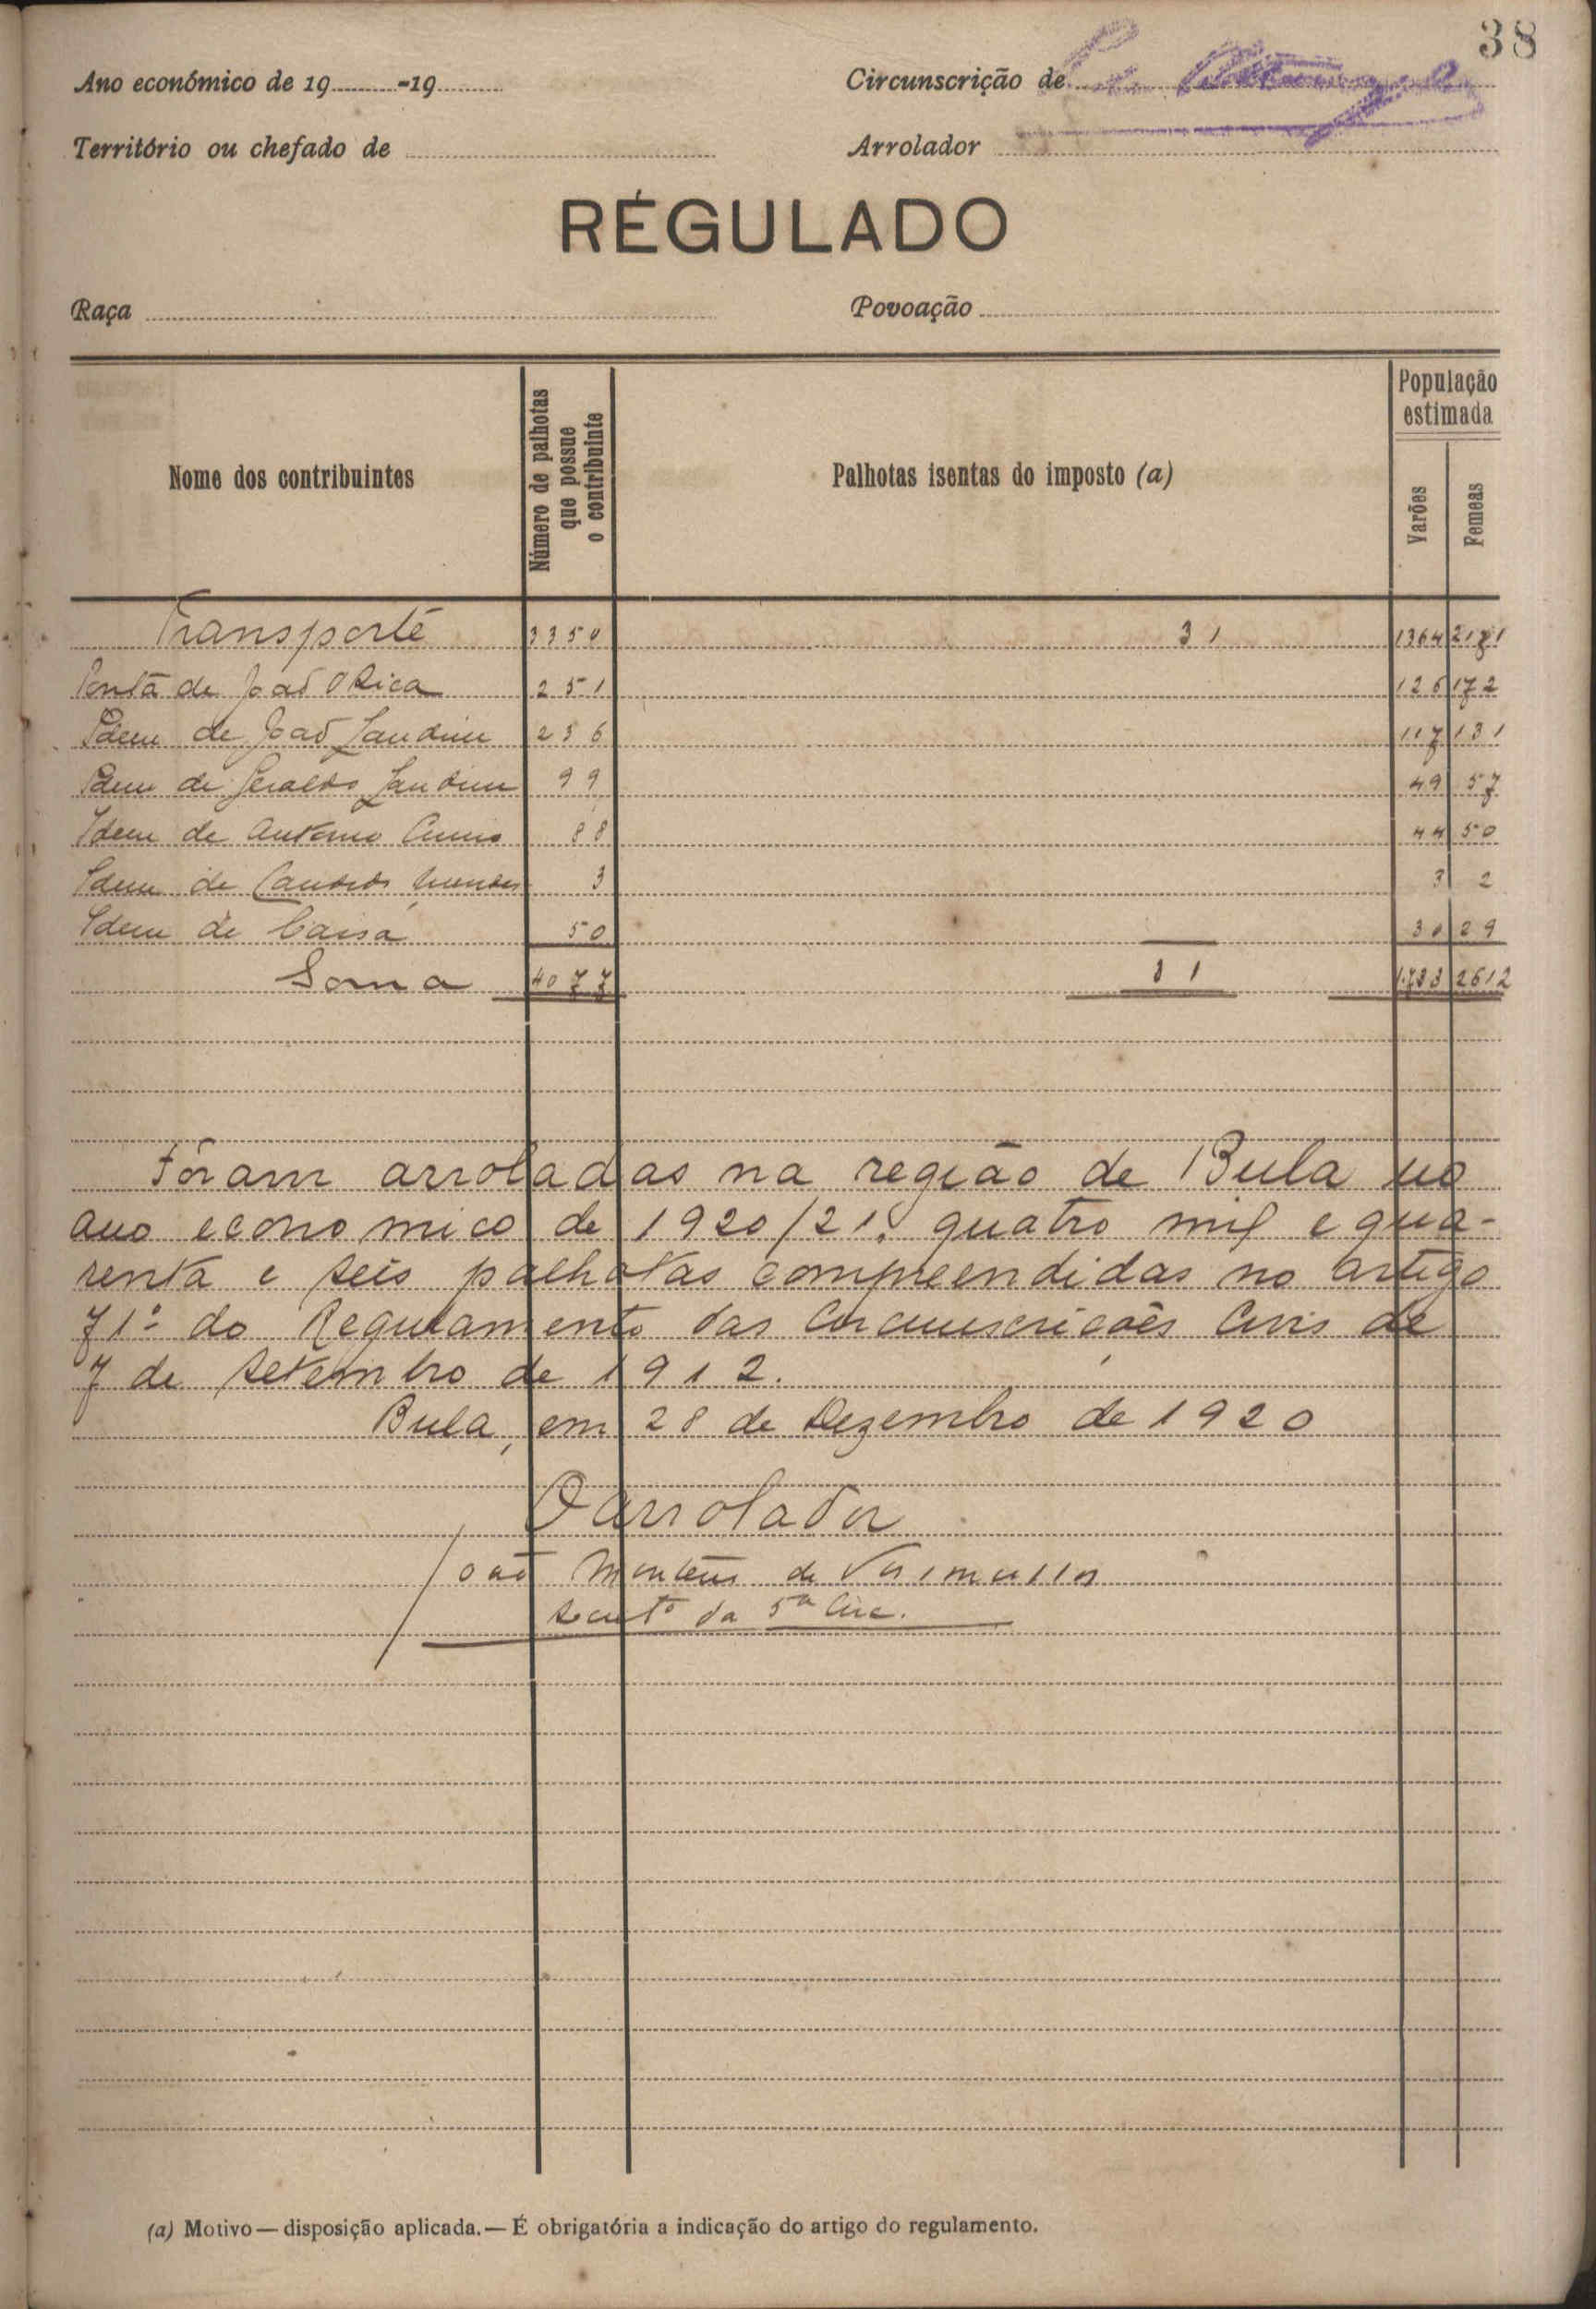 38
Ano económico de 19 -19 Circunscrição de
Território ou chefado de Arrolador
RÉGULADO
Raça Povoação
Nome dos contribuintes Número de palhotas que possue o contribuinte Palhotas isentas do imposto (a) População estimada Varões Femeas
Transporte 3350 31 1364 2171
Ponta de João Obica 251 126 172
Idem de João Landim 236 117 131
Idem de Geraldo Landim 99 49 57
Idem de Antonio 88 44 50
Idem de Candido Mendes 3 3 2
Idem de Caisa 50 30 29
Soma 4077 31 1.733 2612
Fôram arroladas na região de Bula no
ano economico de 1920/21, quatro mil e qua-
renta e seis palhotas compreendidas no artigo
71º do Regulamento das Circunscrições Civis de
7 de Setembro de 1912.
Bula, em 28 de Dezembro de 1920
O arrolador
João Monteiro de
da 5ª Circ.
(a) Motivo — disposição aplicada. — É obrigatória a indicação do artigo do regulamento.